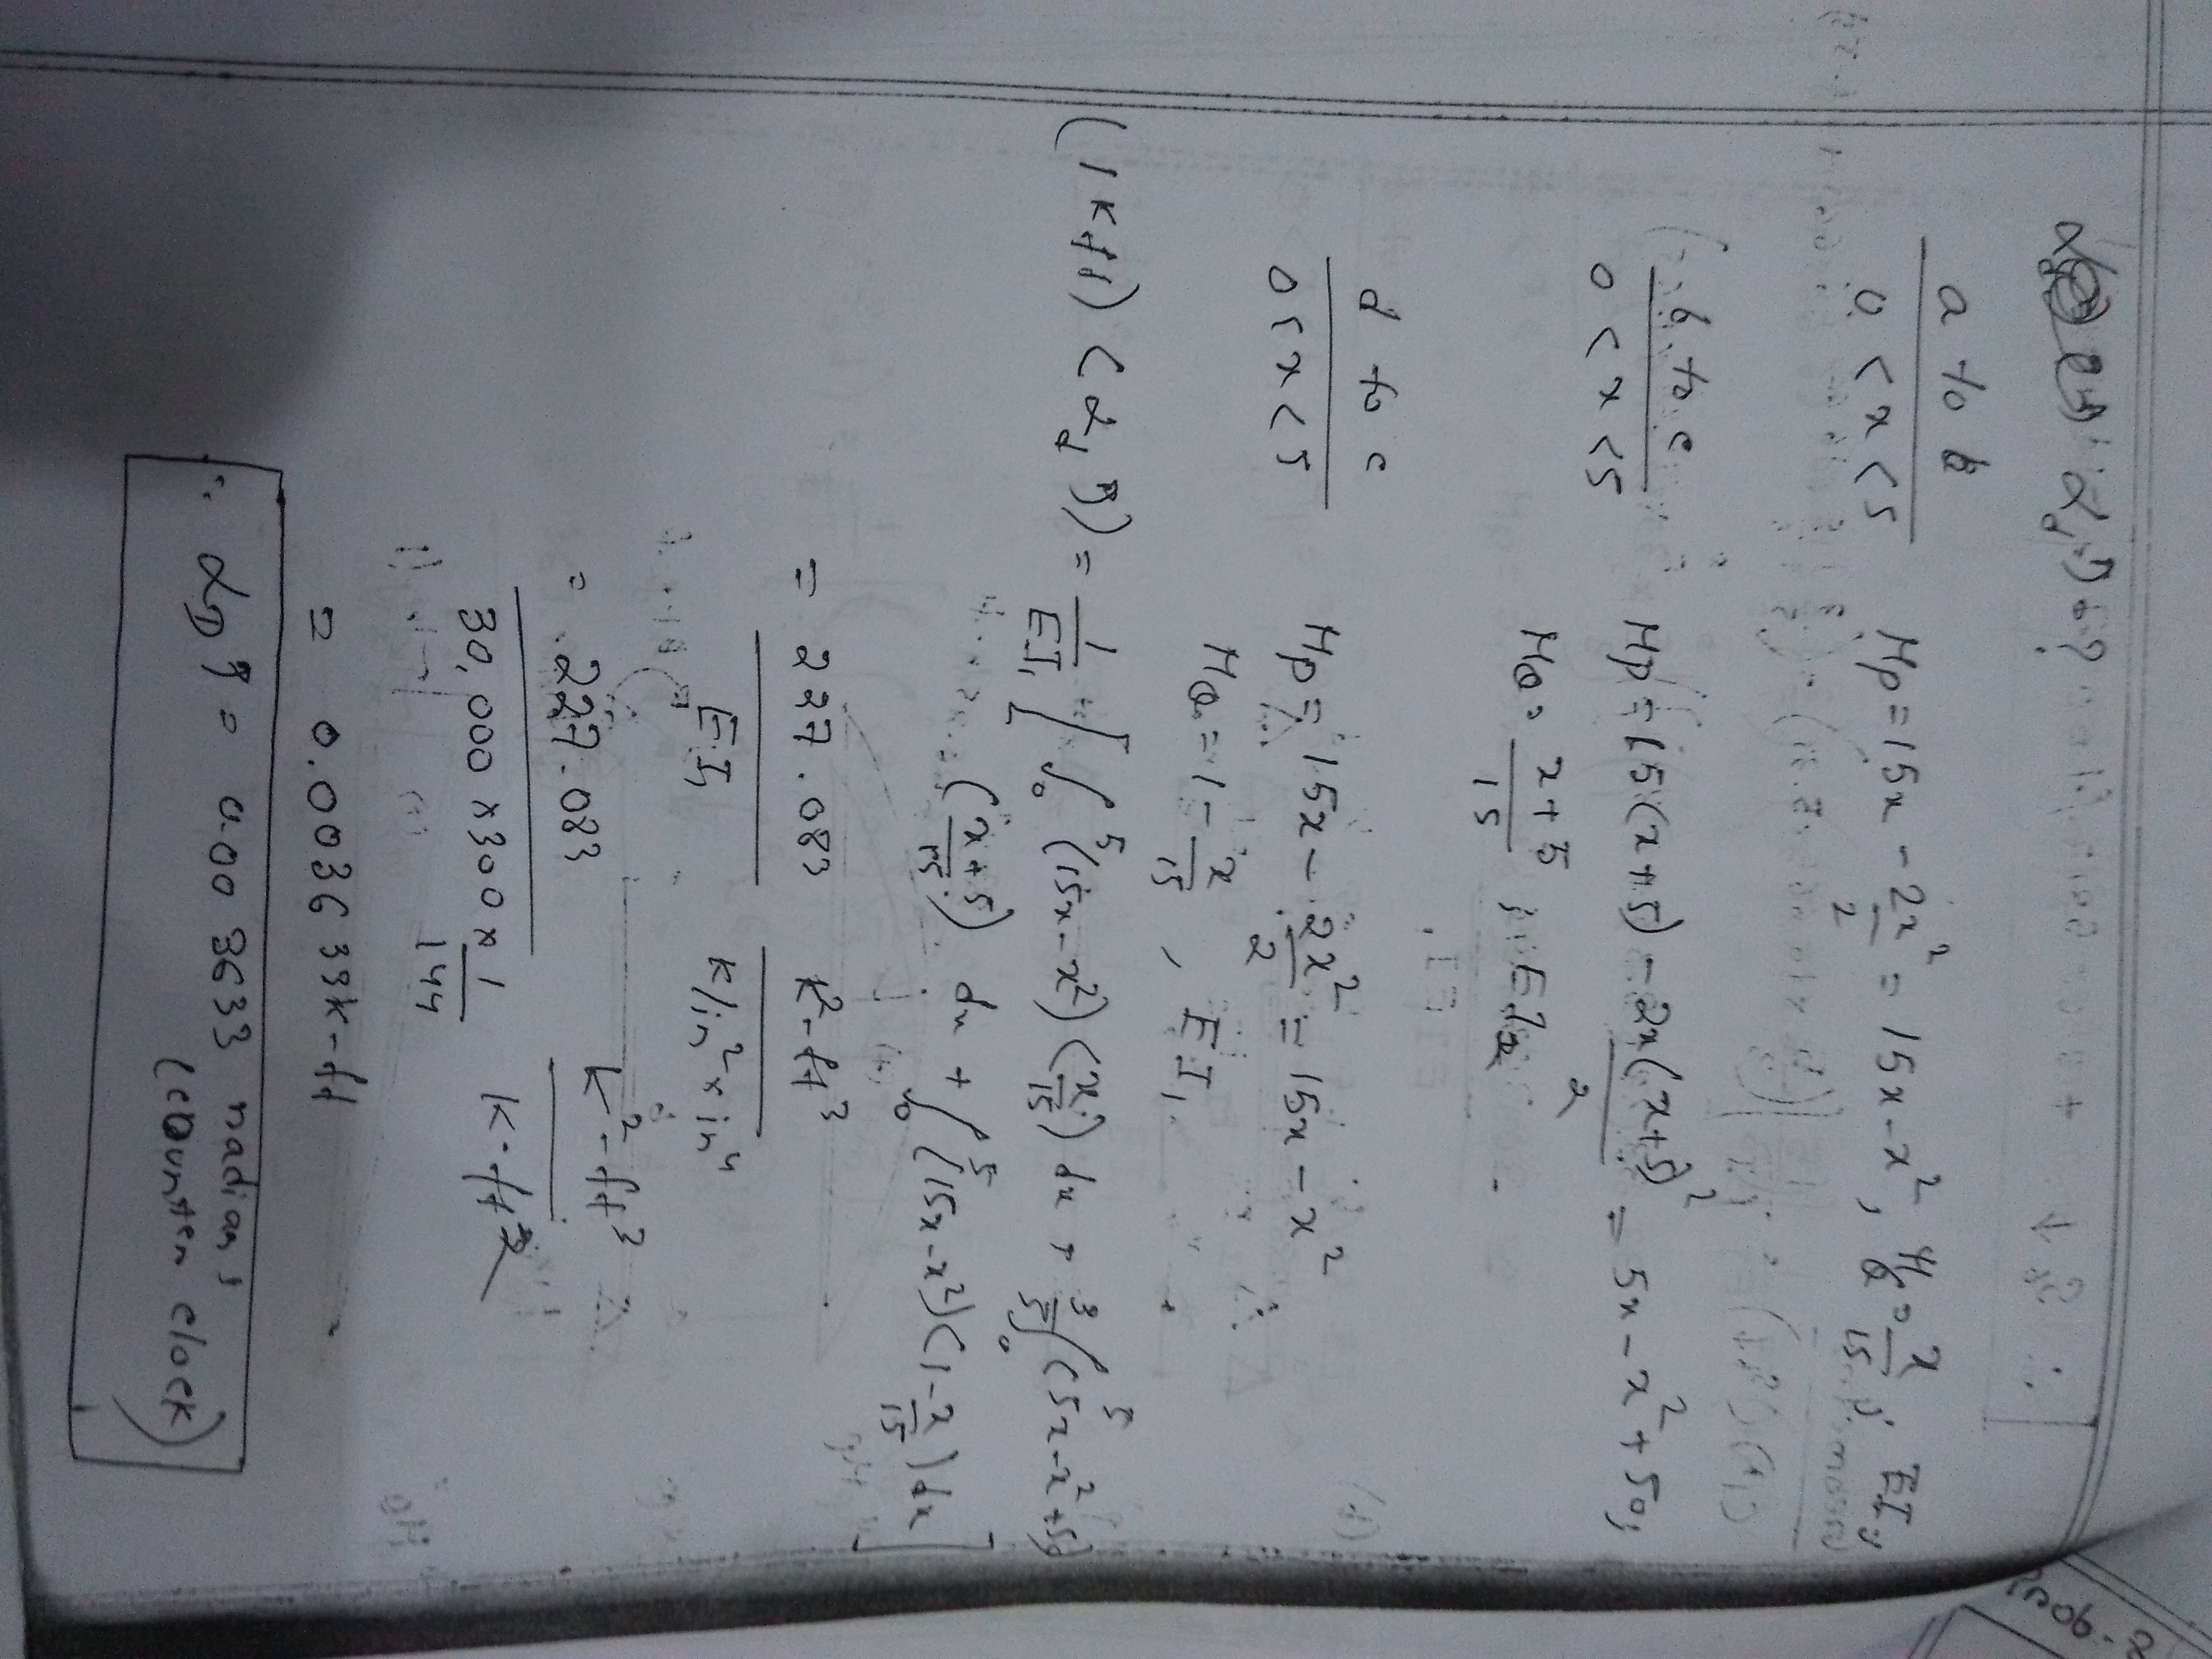 α_d = ?
a to b
0 < x < 5
Mp = 15x - 2x²/2 = 15x - x², M_Q = x/15, EI₁
b to c
0 < x < 5
Mp = 15(x+5) - 2x(x+5)²/2 = 5x - x² + 50,
M_Q = x+5/15, EI₂
d to c
0 ≤ x < 5
Mp = 15x - 2x²/2 = 15x - x²
M_Q = 1 - x/15, EI₁.
(1 K ft) (α_d) = 1/EI₁ [ ∫₀⁵ (15x - x²)(x/15) dx + 3/5 ∫₀⁵ (5x - x² + 50)
(x+5/15) dx + ∫₀⁵ (15x - x²)(1 - x/15) dx ]
= 227.083/EI₁ K²-ft³/K/in² x in⁴
= 227.083/30,000 x 300 x 1/144 K²-ft³/K-ft²
= 0.003633 K-ft
∴ α_D = 0.003633 radian,
(counter clock)